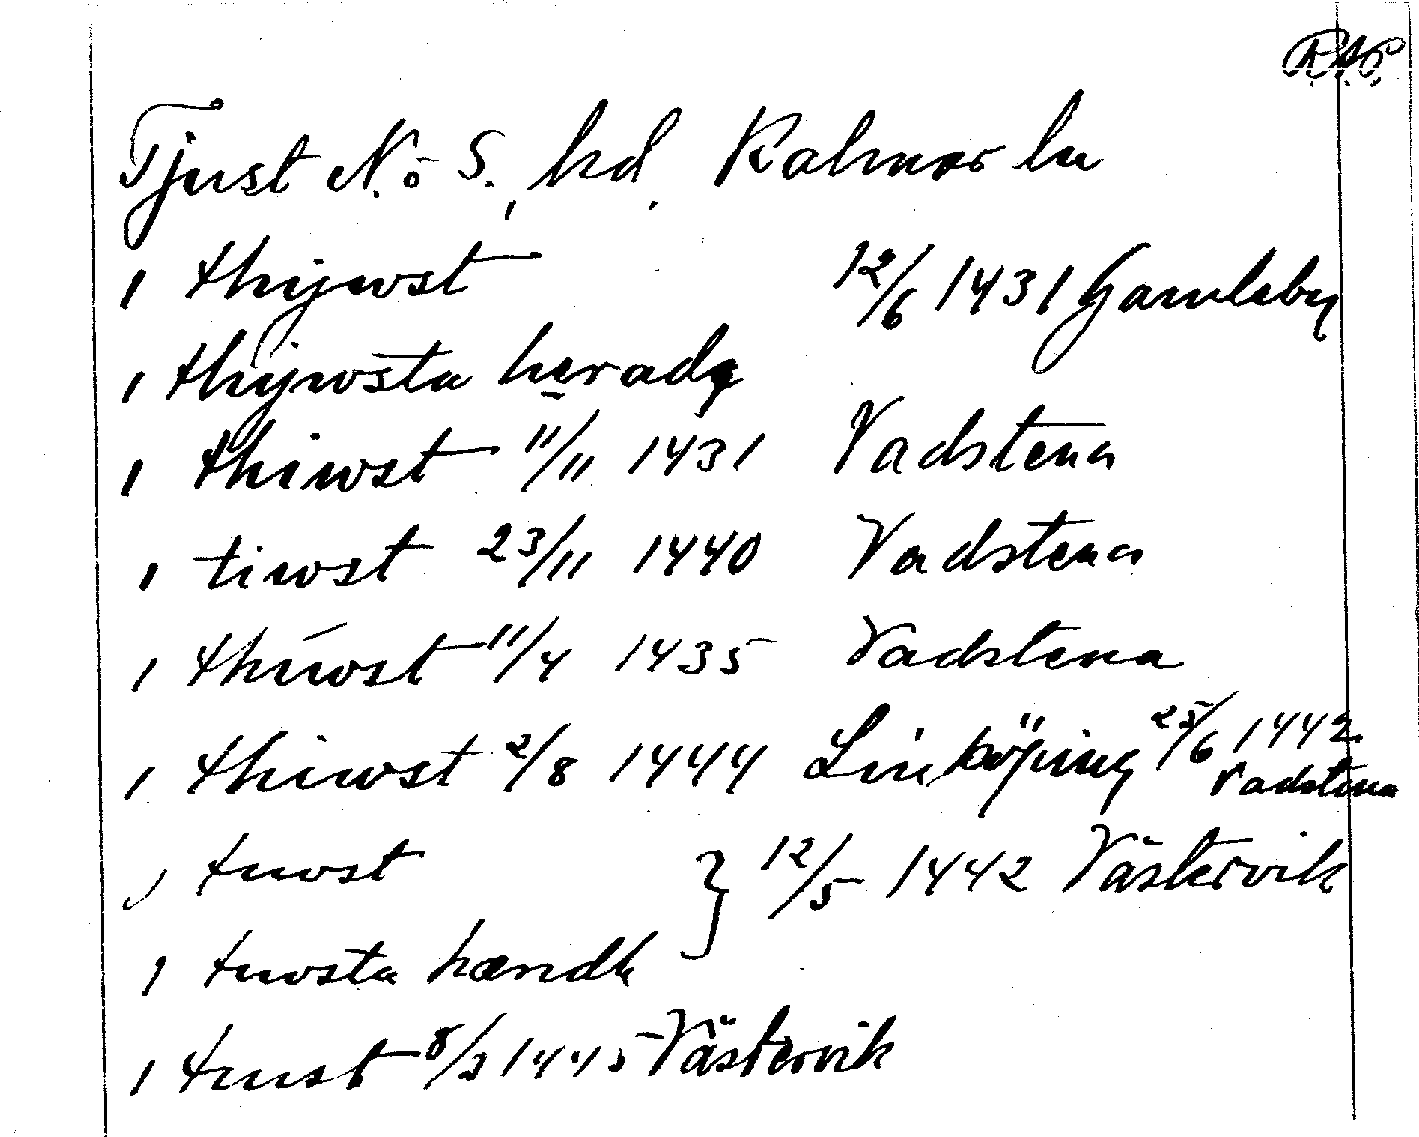 R.A.P.
Tjust N. o S., hd. Kalmar län
i thijwst 12/6 1431 Gamleby
i thijwsta heradz
i thiwst 11/11 1431 Vadstena
i tiwst 23/11 1440 Vadstena
i thiwst 11/4 1435 Vadstena
i thiwst 2/8 1444 Linköping 25/6 1442 Vadstena
i tiwst } 12/5 1442 Västervik
i tiwsta
i tiust 8/2 1445 Västervik